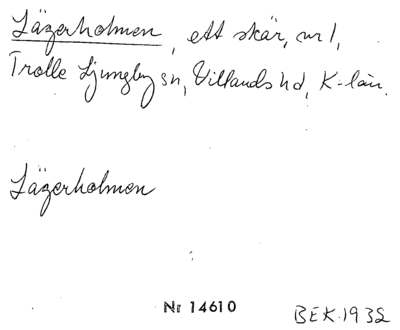 Lägerholmen, ett skär, nr 1,
Trolle Ljungby sn, Villands hd, K-län.
Lägerholmen
Nr 14610
BEK. 1932